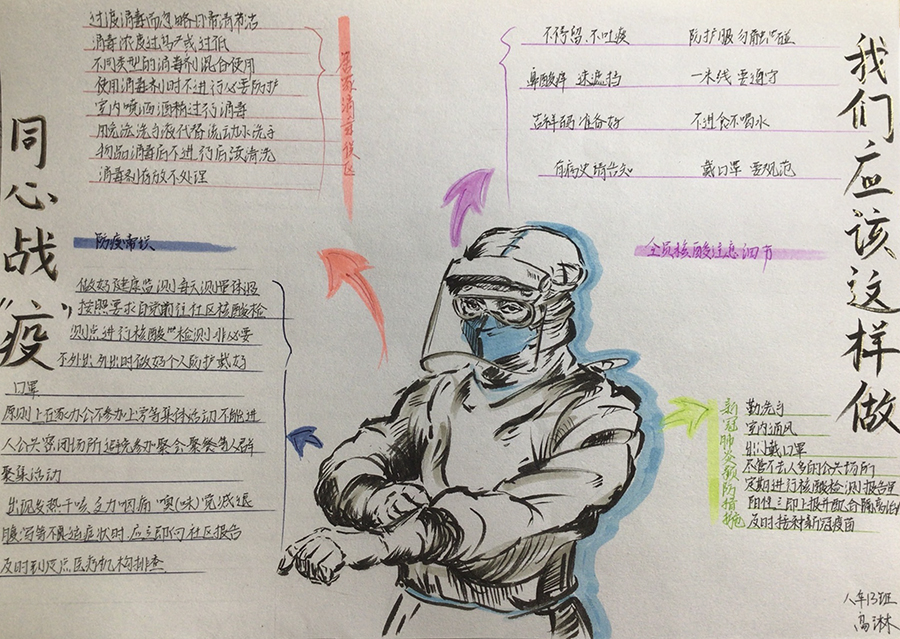 同心战“疫”
过度消毒而忽略日常清洁
消毒浓度过高或过低
不同类型的消毒剂混合使用
使用消毒剂时不进行必要防护
室内喷洒酒精过行消毒
用免洗洗手液代替流动水洗手
物品消毒后不进行后该清洗
消毒剂存放不处理
居家消毒误区
防疫常识
做好健康监测每天测量体温
按照要求自觉前往社区核酸检
测点进行核酸检测非必要
不外出外出时做好个人防护戴好
口罩
原则上在家办公不参加上室等集体活动不能进
人公共密闭场所避免参加聚会聚餐等人群
聚集活动
出现发热干咳乏力咽痛嗅(味)觉减退
腹泻等不适症状时应立即向社区报告
及时到定点医疗机构排查
不停留.不吐痰
防护服勿触碰
鼻酸痒 速遮挡
一米线 要遵守
吉祥码准备好
不进食不喝水
有病史请告知
戴口罩 要规范
全员核酸注意细节
我们应该这样做
新冠肺炎预防措施
勤洗手
室内通风
出门戴口罩
尽量不去人多的公共场所
定期进行核酸检测报告呈
阳性立即上报并配合隔离治疗
及时接种新冠疫苗
八年13班
高琳